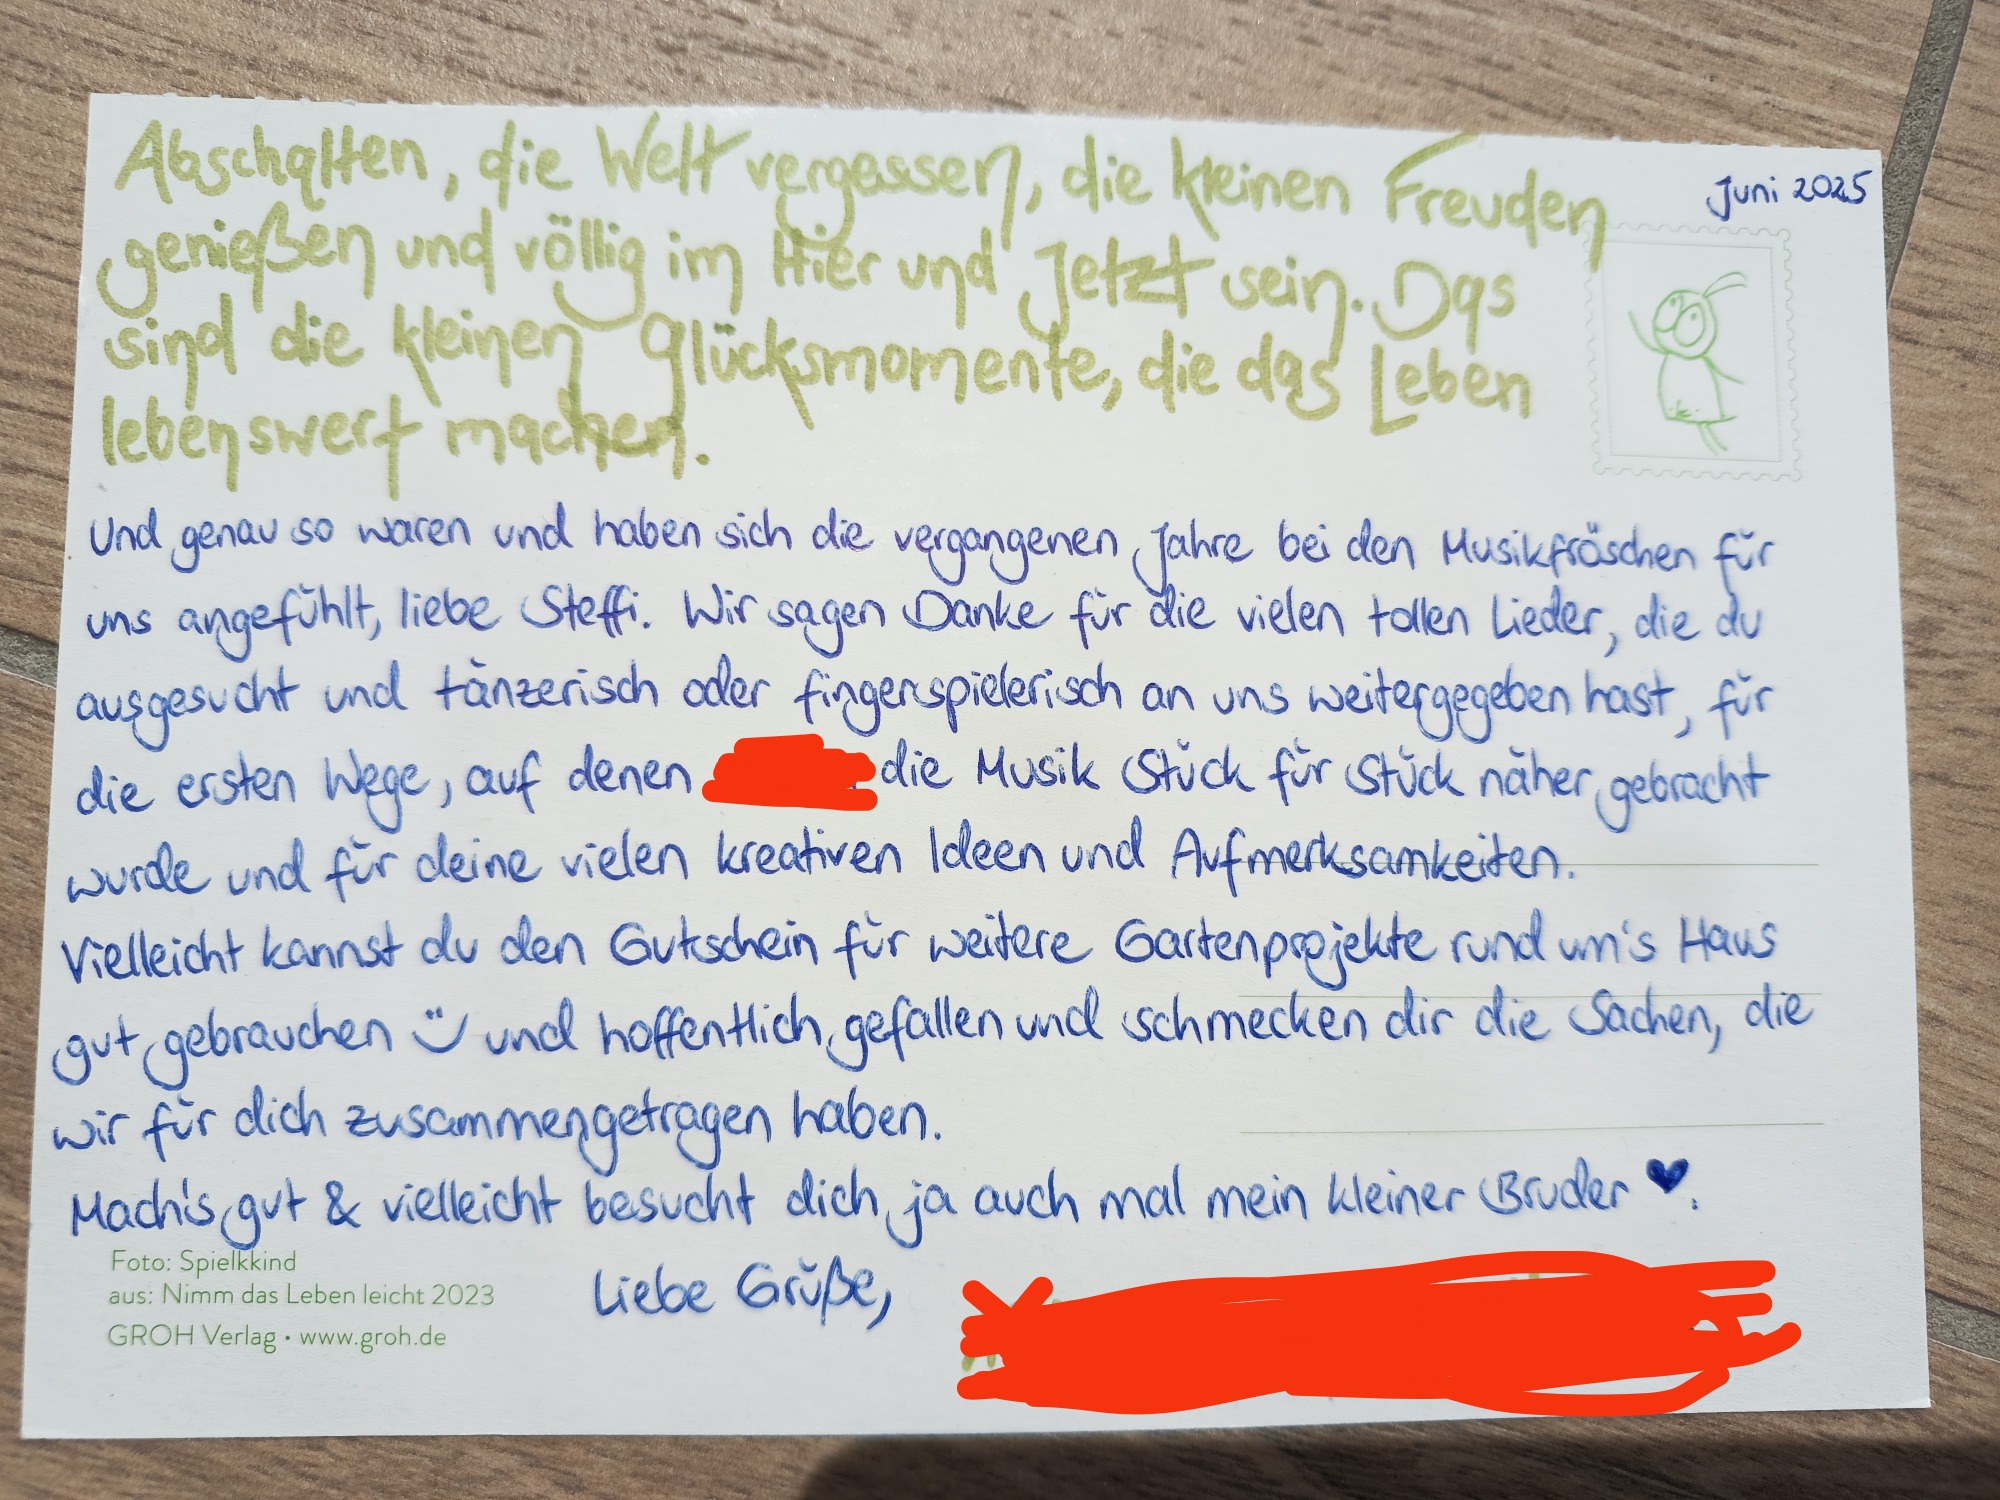 Abschalten, die Welt vergessen, die kleinen Freuden
Juni 2025
genießen und völlig im Hier und Jetzt sein. Das
sind die kleinen Glücksmomente, die das Leben
lebenswert machen.
Und genau so waren und haben sich die vergangenen Jahre bei den Musikfröschen für
uns angefühlt, liebe Steffi. Wir sagen Danke für die vielen tollen Lieder, die du
ausgesucht und tänzerisch oder fingerspielerisch an uns weitergegeben hast, für
die ersten Wege, auf denen die Musik Stück für Stück näher gebracht
wurde und für deine vielen kreativen Ideen und Aufmerksamkeiten.
Vielleicht kannst du den Gutschein für weitere Gartenprojekte rund um's Haus
gut gebrauchen ü und hoffentlich gefallen und schmecken dir die Sachen, die
wir für dich zusammengetragen haben.
Mach's gut & vielleicht besucht dich ja auch mal mein kleiner Bruder ♥.
Liebe Grüße,
Foto: Spielkkind
aus: Nimm das Leben leicht 2023
GROH Verlag • www.groh.de